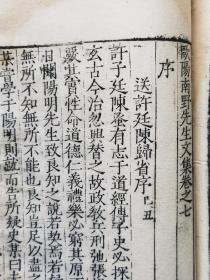 歐陽南野先生文集卷之七
序
送許廷陳歸省序 己丑
許子廷陳蚤有志于道經傳子史必探
玄古今治忽興替之故政教兵刑弛張
嚴其賞性命道德仁義禮樂必窮其原
陽明先生致良知之說若異焉若
無所不知無所不能也良知豈足以盡
嘗學于陽明則就而言所疑史某